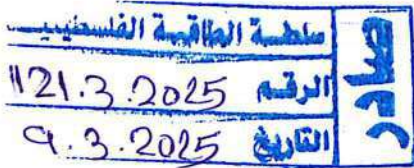 سلطة الطاقة الفلسطيني
الرقم 1121.3.2025
التاريخ 9.3.2025
صادر